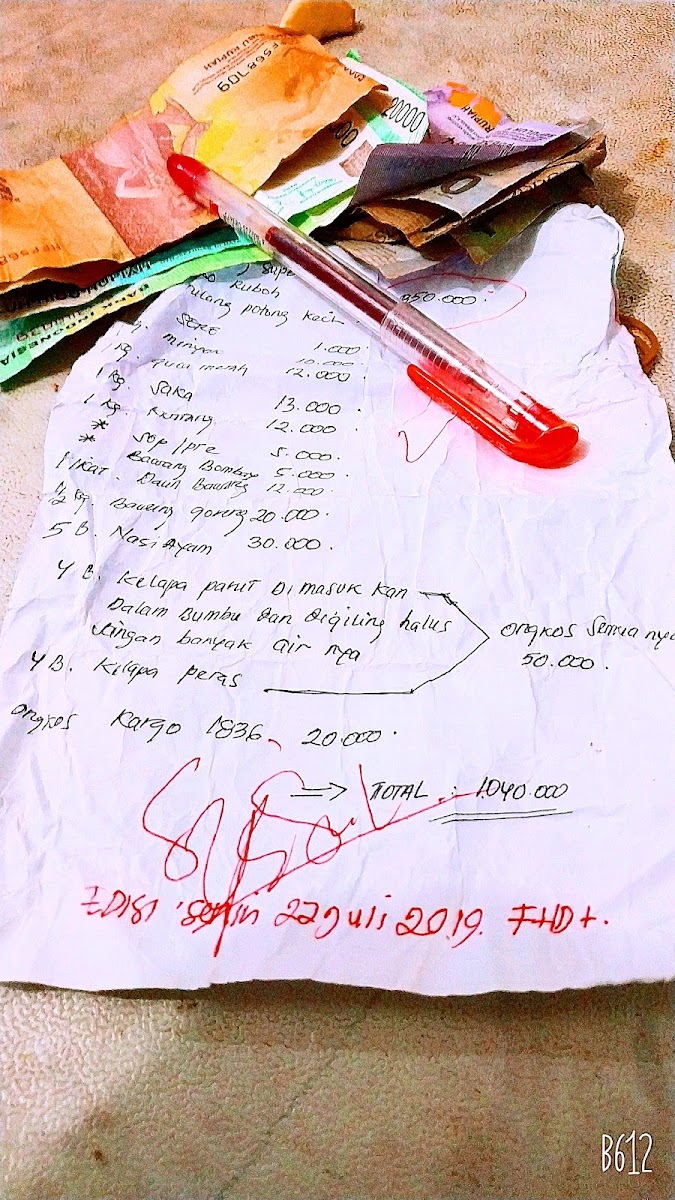 F568709
20000
RUPIAH
BANK INDONESIA
super
950.000.
ruboh
tulang potong kecil.
SERE 1.000
minyak 10.000
kg. gula merah 12.000
1 kg. Saka 13.000.
1 kg. Kentang 12.000.
* Sop/pre 5.000
* Bawang Bombay 5.000.
1 ikat. Daun Bawang 12.000
1/2 kg Bawang goreng 20.000.
5 B. Nasi Ayam 30.000.
4 B. Kelapa parut Dimasuk kan
Dalam bumbu dan digiling halus
Jingan banyak air nya
ongkos semua nya
50.000.
4 B. Kilapa peras
ongkos kargo 1836 20.000.
=> TOTAL : 1.040.000
EDISI senin 22 juli 2019. FHD+.
B612